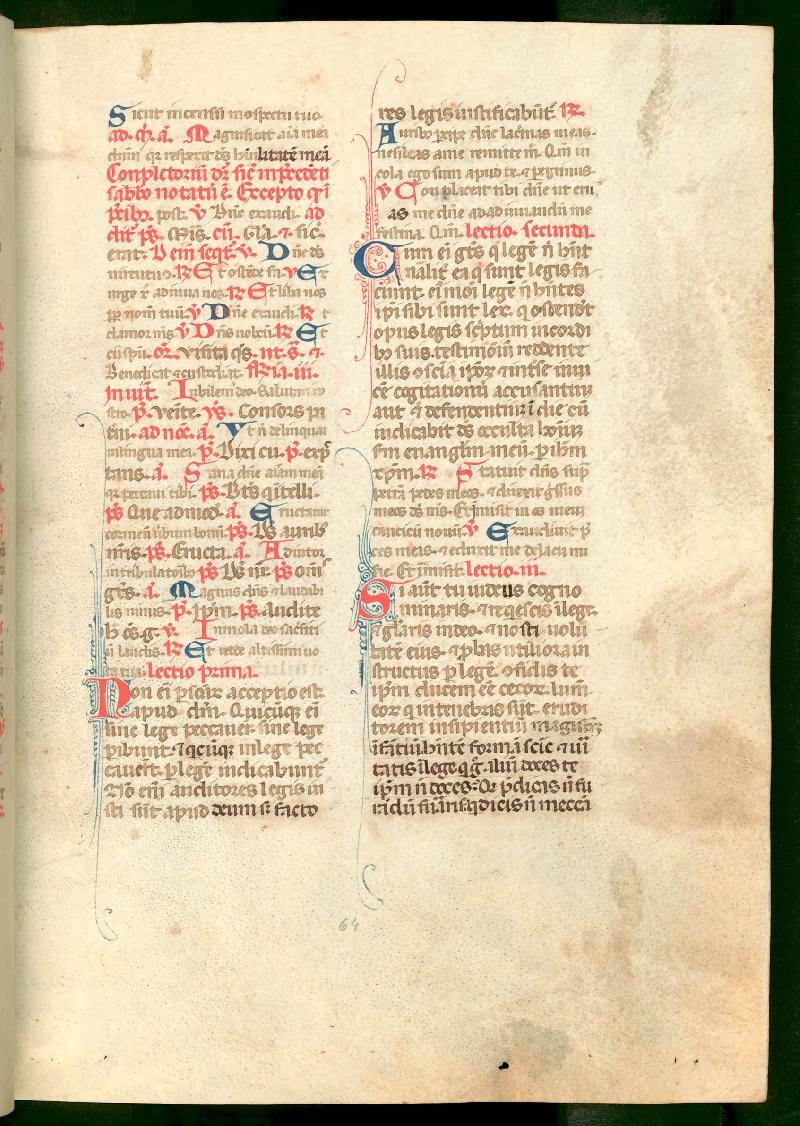 Sicut incensū in ꝯspectu tuo.
ad. ch. a. Magnificat aīa mea
dn̄m qr respexit ds̄ humilitatē meā
Conpletoriū dr̄ sic̄ in p̄cedēti
sabbo notatū ē. Excepto q̄
post. v̄ Dn̄e exaudi. ad
cū. Gl̄a. & sic̄
erat. Dein̄ seqt̄. v. Dn̄e ds̄
uirtutū. R̄ Et ostēde fa. v Et
nos R̄ Et liba nos
nom̄ tuū. v Dn̄e exaudi. R̄ t
clamor m̄s v Dn̄s uobcū. R̄ Et
cū spū. or̄. Visita q̄s. ut. s̄. &
Benedicat & custodiat. Feria. iii.
Inuit̄. Iubilem⁹ deo. Salutari n̄
stro. p̄. Venite. ys̄. Consors pa
tn̄i. ad noc̄. a. Vt n̄ delinquā
in lingua mea. p̄. Dixi cu. p̄. exp̄
tans. a. Sana dn̄e aīam meā
qr peccaui tibi. ps̄. Bt̄s q̄ ītelli.
ps̄ Que ad mod. a. Eructauit
cor meū ūbum bonū. ps̄. Ds̄ aurib⁹
nr̄is. ps̄. Eructa. a. Adiutor
in tribulatōib⁹ ps̄ Ds̄ nr̄. ps̄ om̄s
gēs. a. Magnus dn̄s & laudabi
lis nimis. p̄. Ip̄m. ps̄. Audite
h̄ ōs. g. v. Inmola deo sac̄fici
ū laudis. R̄ Et redde altissimo uo
ta tua. lectio prima.
Non ei p̄sonar acceptio est
apud dm̄. Quicūq̄ ei
sine lege peccauer̄ sine lege
ꝑibunt. & q̄cūq̄ in lege pec
cauer̄t. ꝑ lege iudicabunt̄
No em̄ auditores legis iu
sti sūt apud deum sꝫ facto
res legis iustificabūt̄. R̄.
Aurib⁹ ꝑcipe dn̄e lac̄mas meas.
ne sileas a me remitte m̄. Qm̄ in
cola ego sum apud te. & peginus.
v Conplaceat tibi dn̄e ut eru
as me dn̄e ad adiuuandū me
festina. Qm̄. lectio. secunda.
Cum ei gn̄s q̄ legē n̄ hn̄t
nat̄alit̄ ea q̄ sunt legis fa
ciunt. ei⁹mōi legē n̄ hn̄tes
ipi sibi sunt lex. q̄ ostendūt
opus legis sc̄ptum in cordi
b⁹ suis. testimōiū reddente
illis ꝯscīa ip̄oꝝ. & int̄ se inui
cē cogitationū accusantiū
aut & defendentiū ī die cū
iudicabit ds̄ occulta hoīuꝫ
sm̄ euangliū meū. p ih̄m
xp̄m. R̄ Statuit dn̄s sup̄
petrā pedes meos. & direxit ḡssus
meos ds̄ m̄s. Et īmisit in os meuꝫ
canticū nouū. v Exaudiuit p̄
ces meas. & eduxit me de lacu mi
sie. Et imisit. lectio. iii.
Si aūt tu iudeus cogno
minaris. & reqescis ī lege.
& gl̄aris in deo. & nosti uolū
tatē eius. & ꝓbas utiliora in
structus ꝑ legē. ꝯfidis te
ip̄m ducem eē cecoꝝ. lum̄
eoꝝ q in tenebris sūt. erudi
torem insipientiū magistꝝ
īfātiū. hn̄te formā scīe & ūi
tatis ī lege. q g̊. aliū doces te
ip̄m n̄ doces. Qr p̄dicas n̄ fu
rādū furāris. q dicis n̄ mecā
64